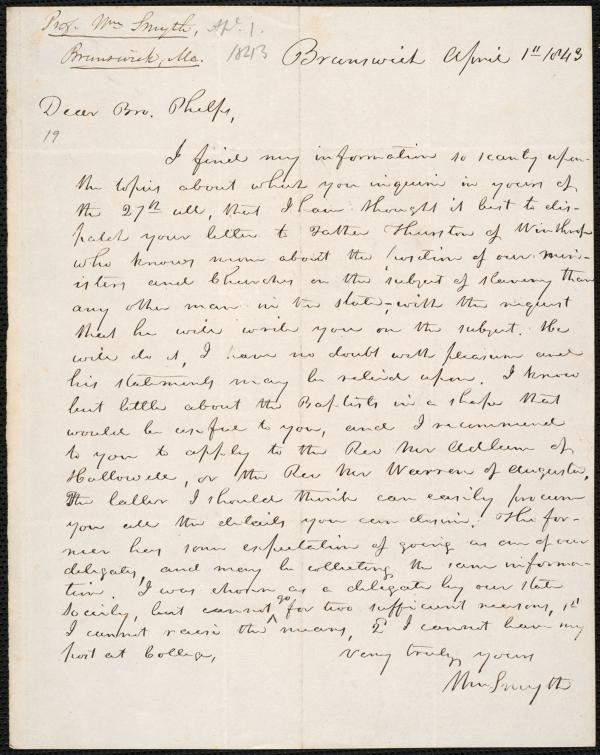 Prof. Wm Smyth, Ap. 1.
Brunswick, Me. 1843
Brunswick April 1st 1843
Dear Bro. Phelps,
19
I find my information so scanty upon
the topics about which you inquire in yours of
the 27th ult, that I have thought it best to dis-
patch your letter to Father Thurston of Winthrop
who knows more about the position of our min-
isters and Churches on the subject of slavery than
any other man in the state, with the request
that he will write you on the subject. He
will do it, I have no doubt with pleasure and
his statements may be relied upon. I know
but little about the Baptists in a shape that
would be useful to you, and I recommend
to you to apply to the Rev Mr Adlam of
Hallowell, or the Rev Mr Warren of Augusta,
The latter I should think can easily procure
you all the details you can desire. The for-
mer has some expectation of going as one of our
delegates, and may be collecting the same informa-
tion. I was chosen as a delegate by our state
Society, but cannot go for two sufficient reasons, 1st
I cannot raise the means, 2 I cannot leave my
post at College,
Very truly yours
Wm Smyth